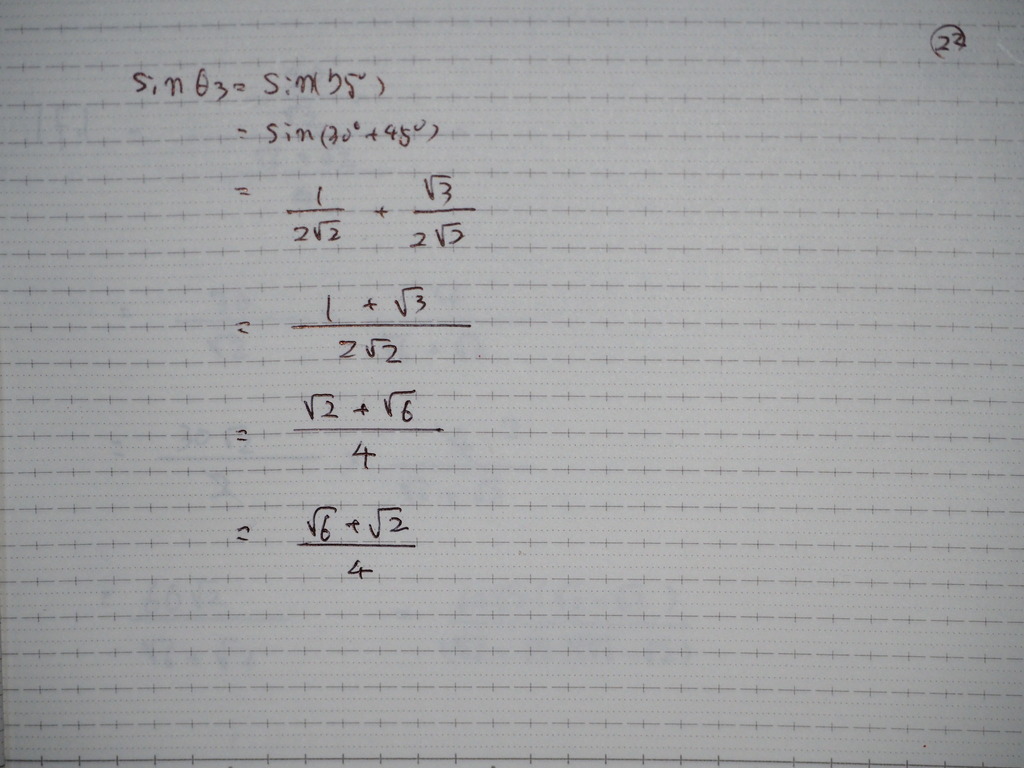 22
sin θ3 = sin(75°)
= sin(30° + 45°)
= 1/2√2 + √3/2√2
= 1 + √3/2√2
= √2 + √6/4
= √6 + √2/4